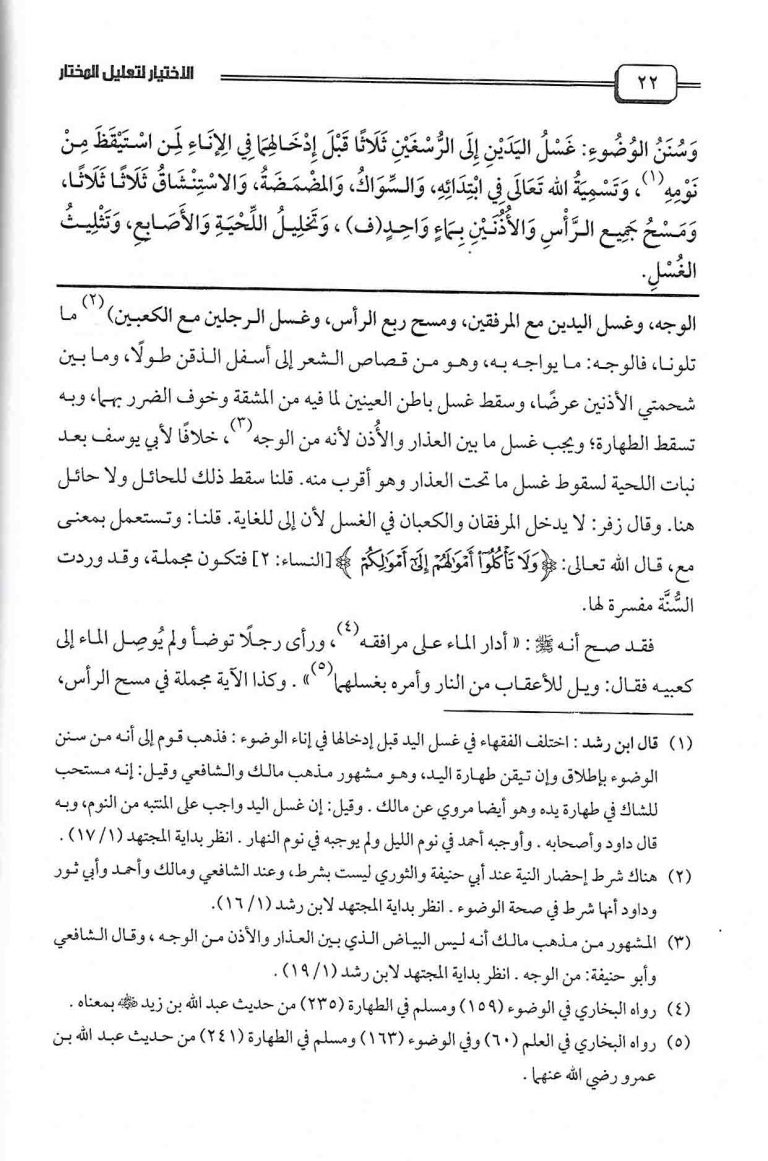 ٢٢
الاختيار لتعليل المختار
وَسُنَنُ الوُضُوءِ: غَسْلُ اليَدَيْنِ إِلَى الرُّسْغَيْنِ ثَلَاثًا قَبْلَ إِدْخَالِهِمَا فِي الإِنَاءِ لِمَن اسْتَيْقَظَ مِنْ
نَوْمِهِ(١)، وَتَسْمِيَةُ الله تَعَالَى فِي ابْتِدَائِهِ، وَالسِّوَاكُ، وَالمَضْمَضَةُ، وَالاسْتِنْشَاقُ ثَلَاثًا ثَلَاثًا،
وَمَسْحُ جَمِيعِ الرَّأْسِ وَالأُذُنَيْنِ بِمَاءٍ وَاحِدٍ(ف)، وَتَخْلِيلُ اللِّحْيَةِ وَالأَصَابِعِ، وَتَثْلِيثُ
الغُسْلِ.
الوجه، وغسل اليدين مع المرفقين، ومسح ربع الرأس، وغسل الرجلين مع الكعبين)(٢) ما
تلونا، فالوجه: ما يواجه به، وهو من قصاص الشعر إلى أسفل الذقن طولًا، وما بين
شحمتي الأذنين عرضًا، وسقط غسل باطن العينين لما فيه من المشقة وخوف الضرر بهما، وبه
تسقط الطهارة؛ ويجب غسل ما بين العذار والأُذن لأنه من الوجه(٣)، خلافًا لأبي يوسف بعد
نبات اللحية لسقوط غسل ما تحت العذار وهو أقرب منه. قلنا سقط ذلك للحائل ولا حائل
هنا. وقال زفر: لا يدخل المرفقان والكعبان في الغسل لأن إلى للغاية. قلنا: وتستعمل بمعنى
مع، قال الله تعالى: ﴿وَلَا تَأْكُلُوٓا۟ أَمْوَٰلَهُمْ إِلَىٰٓ أَمْوَٰلِكُمْ﴾ [النساء: ٢] فتكون مجملة، وقد وردت
السُّنَّة مفسرة لها.
فقد صح أنه ﷺ: « أدار الماء على مرافقه(٤)، ورأى رجلًا توضأ ولم يُوصِل الماء إلى
كعبيه فقال: ويل للأعقاب من النار وأمره بغسلهما(٥)» . وكذا الآية مجملة في مسح الرأس،
(١) قال ابن رشد : اختلف الفقهاء في غسل اليد قبل إدخالها في إناء الوضوء : فذهب قوم إلى أنه من سنن
الوضوء بإطلاق وإن تيقن طهارة اليد، وهو مشهور مذهب مالك والشافعي وقيل: إنه مستحب
للشاك في طهارة يده وهو أيضا مروي عن مالك . وقيل: إن غسل اليد واجب على المنتبه من النوم، وبه
قال داود وأصحابه . وأوجبه أحمد في نوم الليل ولم يوجبه في نوم النهار . انظر بداية المجتهد (١/ ١٧) .
(٢) هناك شرط إحضار النية عند أبي حنيفة والثوري ليست بشرط، وعند الشافعي ومالك وأحمد وأبي ثور
وداود أنها شرط في صحة الوضوء . انظر بداية المجتهد لابن رشد (١/ ١٦).
(٣) المشهور من مذهب مالك أنه ليس البياض الذي بين العذار والأذن من الوجه ، وقال الشافعي
وأبو حنيفة: من الوجه . انظر بداية المجتهد لابن رشد (١/ ١٩) .
(٤) رواه البخاري في الوضوء (١٥٩) ومسلم في الطهارة (٢٣٥) من حديث عبد الله بن زيد ﵁ بمعناه .
(٥) رواه البخاري في العلم (٦٠) وفي الوضوء (١٦٣) ومسلم في الطهارة (٢٤١) من حديث عبد الله بن
عمرو رضي الله عنهما .